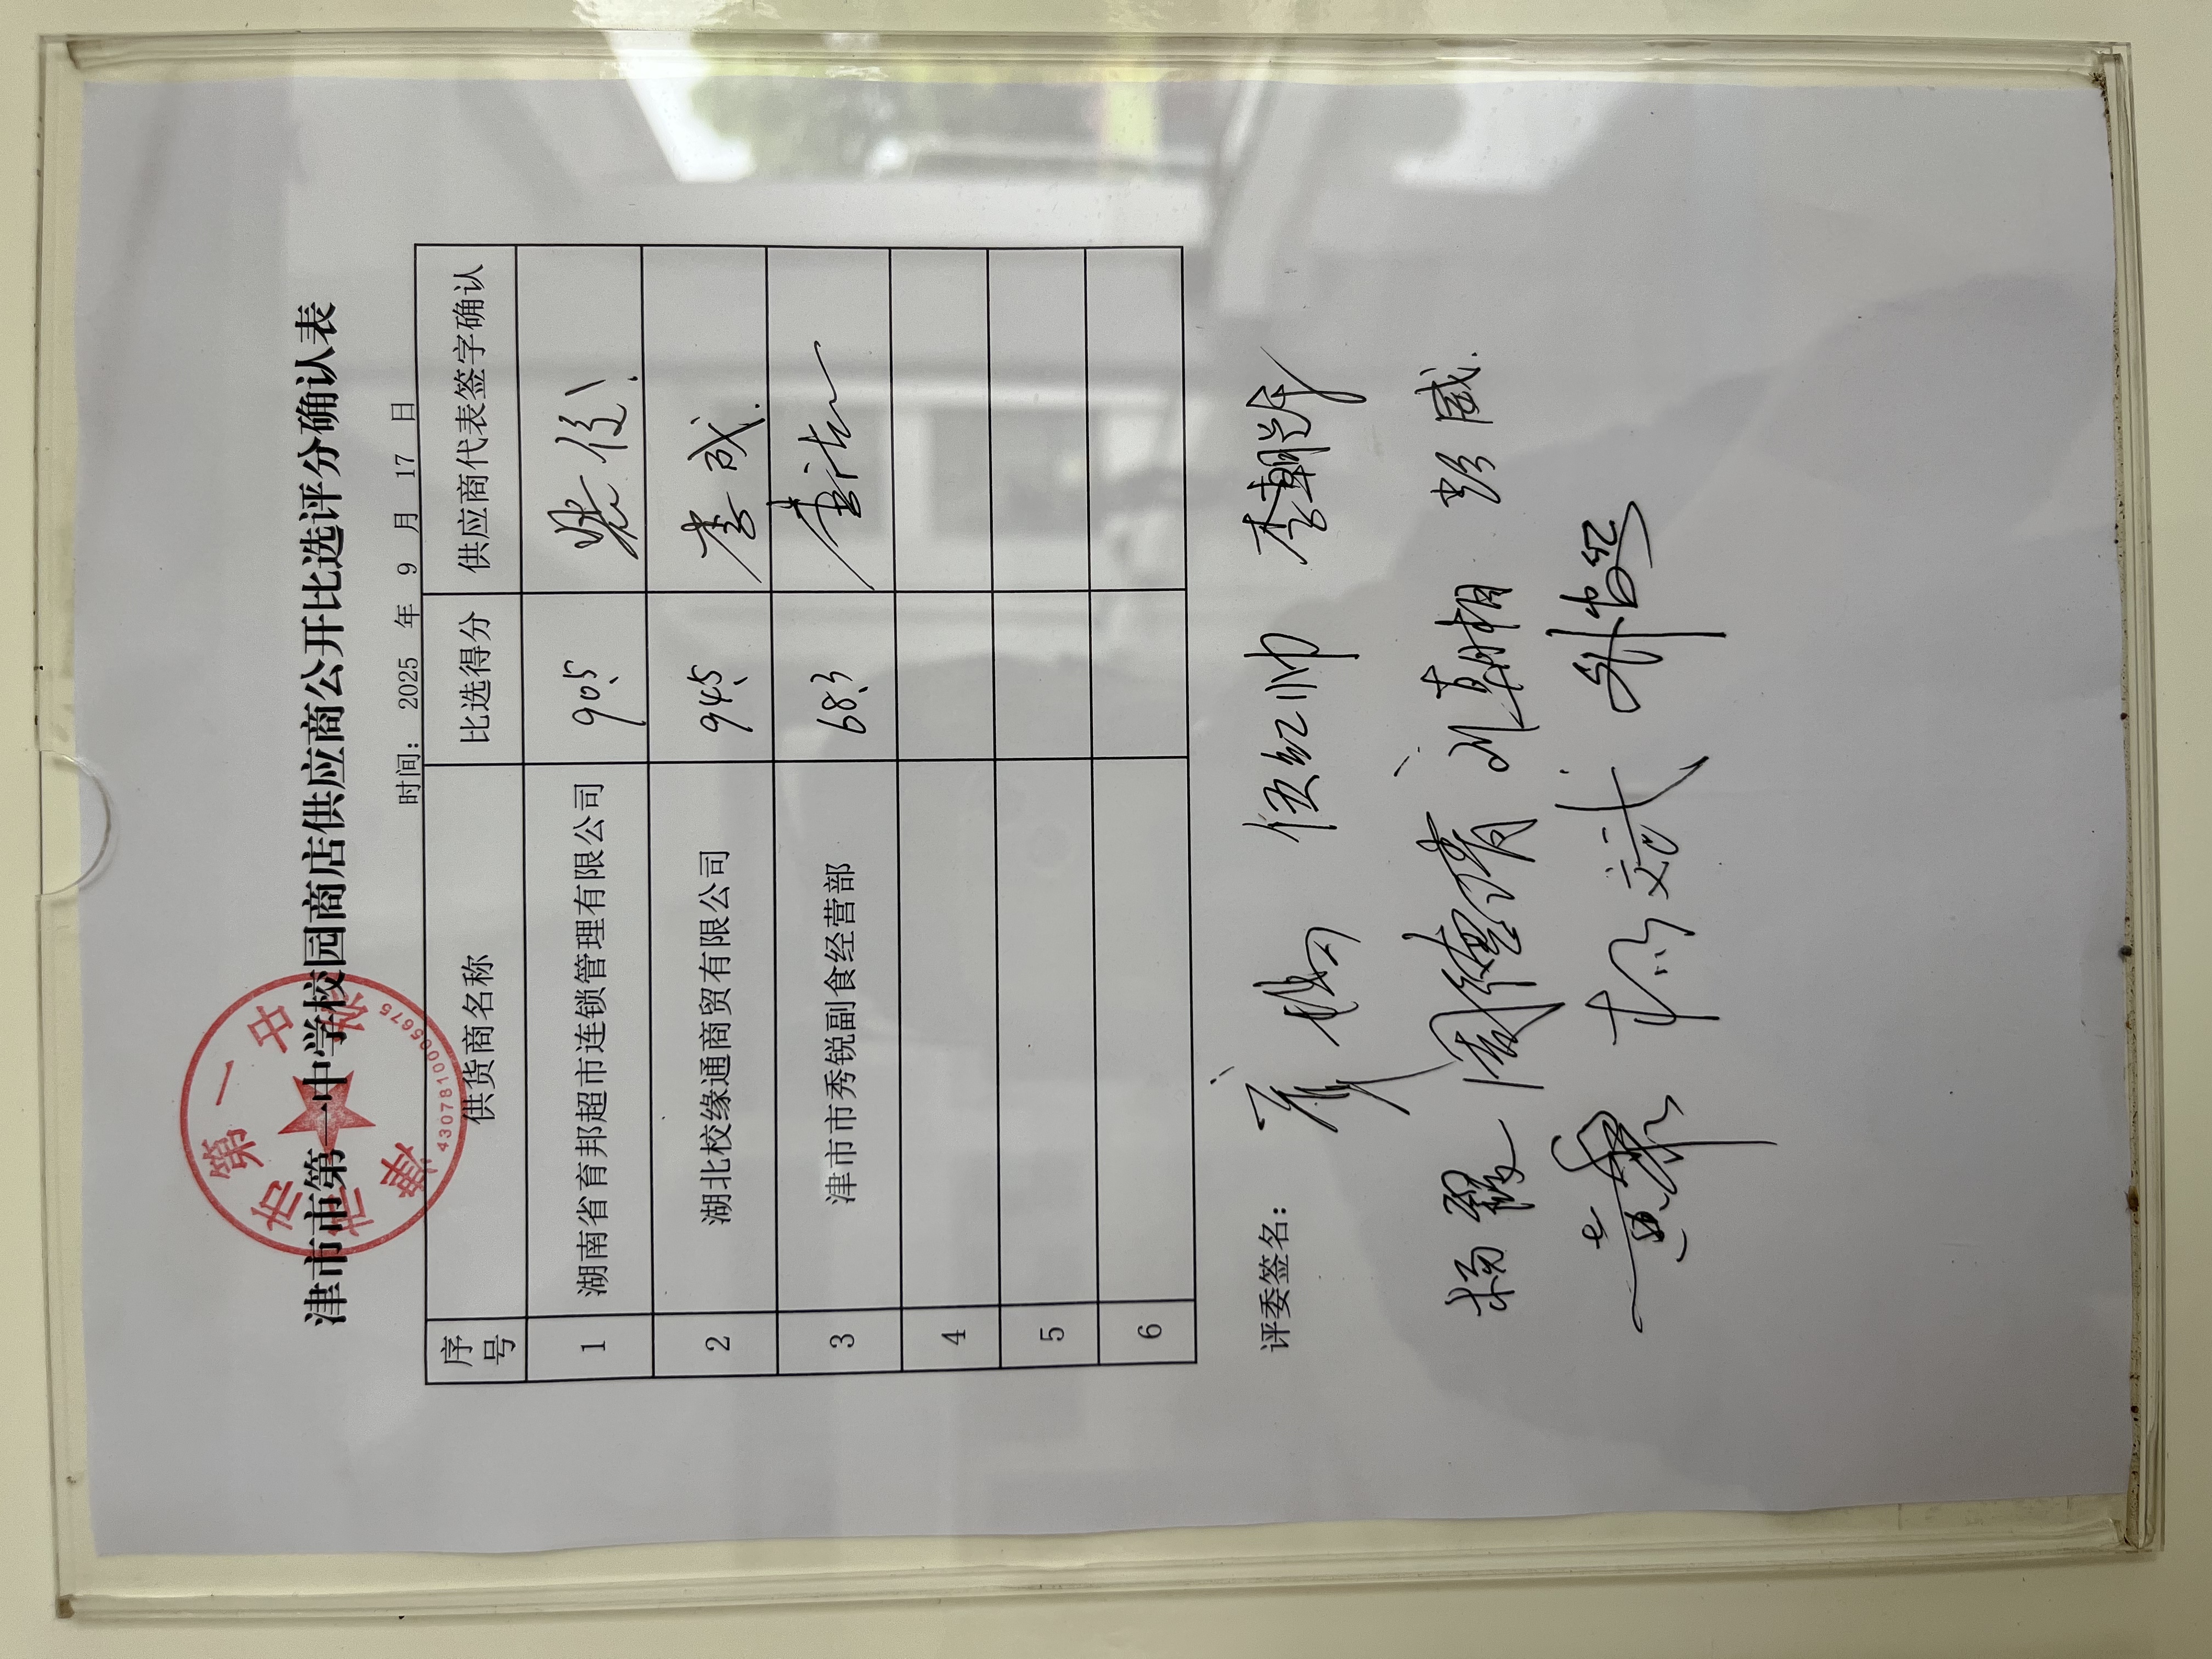 津市市第一中学校园商店供应商公开比选评分确认表
时间: 2025 年 9 月 17 日
序号 供货商名称 比选得分 供应商代表签字确认
1 湖南省育邦超市连锁管理有限公司 90.5
2 湖北校缘通商贸有限公司 94.5 李成
3 津市市秀锐副食经营部 68.3
4
5
6
评委签名: 伍红帅
杨霞 周德清 刘朝相 彭威
4307810005675